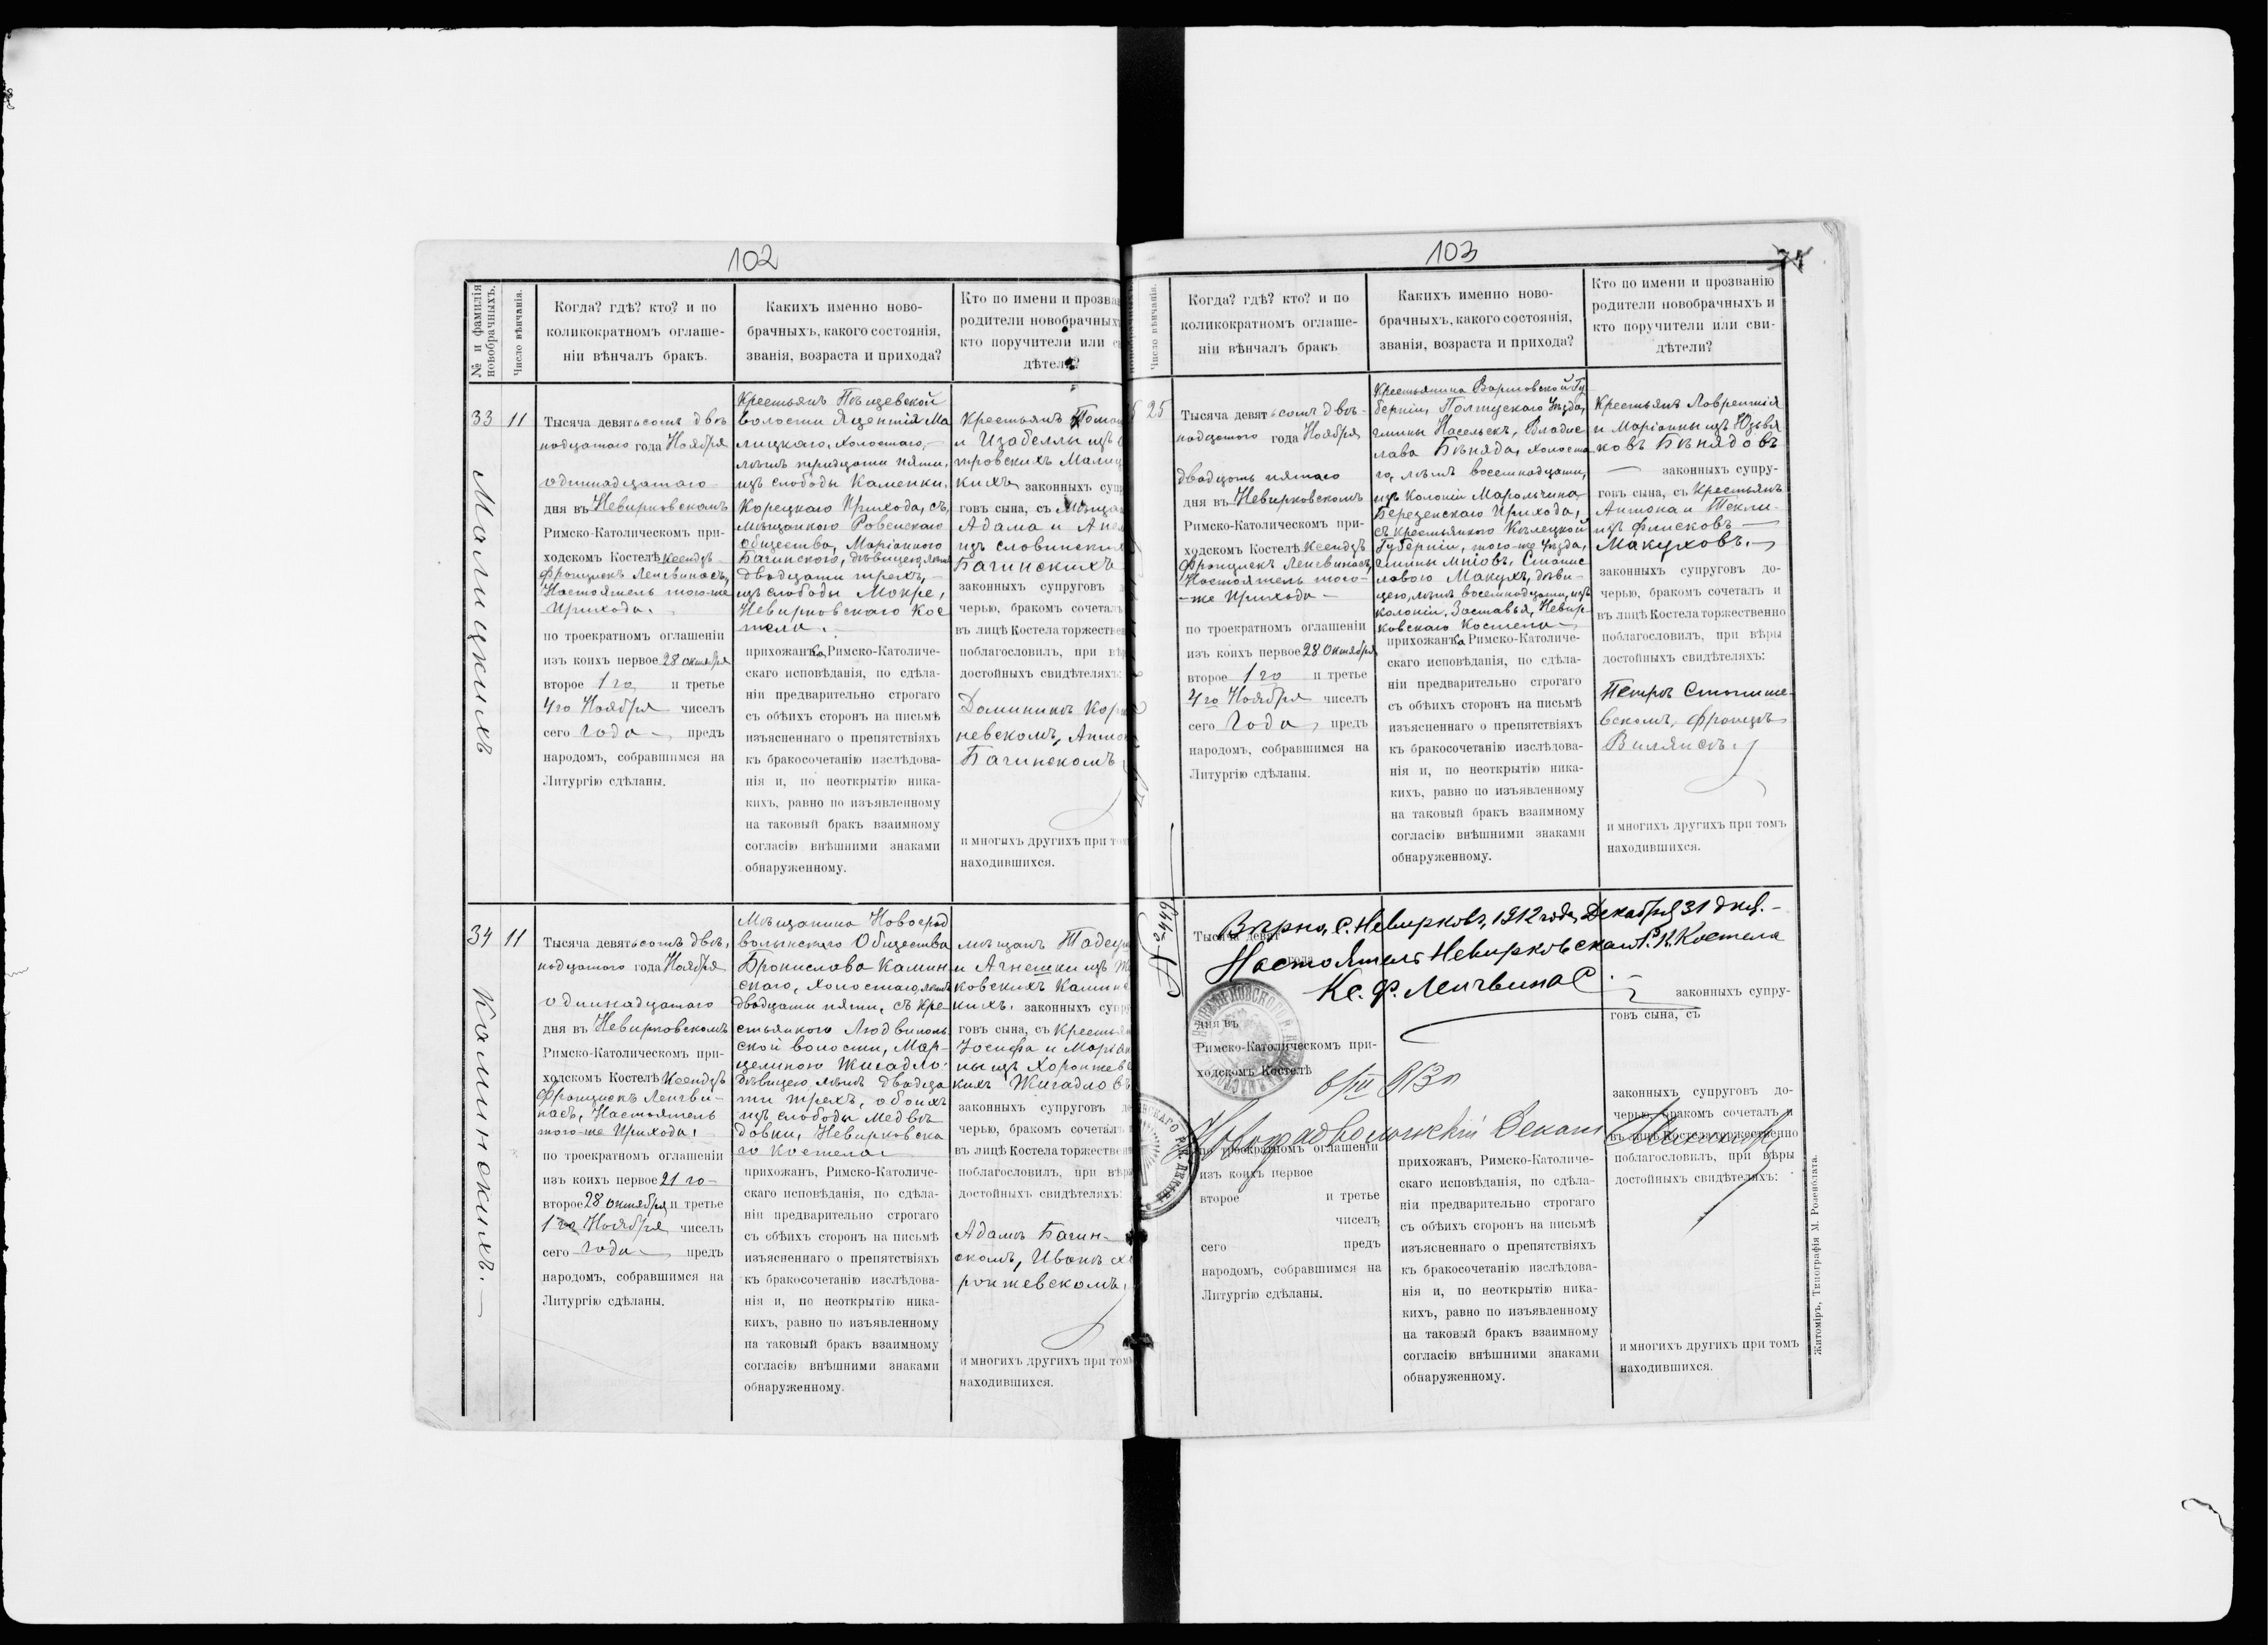 102
№ и фамилія новобрачныхъ.
Число вѣнчанія.
Когда? гдѣ? кто? и по
коликократномъ оглаше-
ніи вѣнчалъ бракъ.
Каких‌ъ именно ново-
брачныхъ, какого состоянія,
званія, возраста и прихода?
Кто по имени и прозва
родители новобрачных
кто поручители или с
дѣтели?
33
11
Малицкихъ
Тысяча девятьсотъ двѣ
надцатаго года Ноября
одиннадцатаго
дня въ Невирковскомъ
Римско-Католическомъ при-
ходскомъ Костелѣ Ксендзъ
Францискъ Ленгвинасъ,
Настоятель того-же
Прихода.
по троекратномъ оглашеніи
изъ коихъ первое 28 октября
второе 1 го и третье
4 го Ноября чиселъ
сего года предъ
народомъ, собравшимся на
Литургію сдѣланы.
Крестьянъ Пѣщевской
волости Яцентія Ма
лицкаго, холостаго,
лѣтъ тридцати пяти,
изъ слободы Каменки,
Корецкаго Прихода, съ
мѣщанкою Ровенскаго
Общества, Маріанною
Багинскою, дѣвицею, лѣтъ
двадцати трехъ,
изъ слободы Мокре,
Невирковскаго Кос
тела.
прихожанка, Римско-Католиче-
скаго исповѣданія, по сдѣла-
ніи предварительно строгаго
съ обѣихъ сторонъ на письмѣ
изъясненнаго о препятствіяхъ
къ бракосочетанію изслѣдова-
нія и, по неоткрытію ника-
кихъ, равно по изъявленному
на таковый бракъ взаимному
согласію внѣшними знаками
обнаруженному.
Крестьянъ Томаш
и Изабеллы изъ
тровскихъ Малиц
кихъ законныхъ суп
говъ сына, съ Мѣщан
Адама и Ане
изъ Словинских
Багинскихъ
законныхъ супруговъ
черью, бракомъ сочеталъ
въ лицѣ Костела торжествен
поблагословилъ, при вѣр
достойныхъ свидѣтеляхъ:
Доминикѣ Кор
невскомъ, Антон
Багинскомъ
и многихъ другихъ при том
находившихся.
34
11
Каминскихъ.
Тысяча девятьсотъ двѣ,
надцатаго года Ноября
одиннадцатаго
дня въ Невирковскомъ
Римско-Католическомъ при-
ходскомъ Костелѣ Ксендзъ
Францискъ Ленгви-
насъ, Настоятель
того-же Прихода.
по троекратномъ оглашеніи
изъ коихъ первое 21 го
второе 28 октября и третье
1 го Ноября чиселъ
сего года предъ
народомъ, собравшимся на
Литургію сдѣланы.
Мѣщанина Новоград
волынскаго Общества
Бронислава Камин
скаго, холостаго, лѣтъ
двадцати пяти, съ кре-
стьянкою Людвиполь
ской волости, Мар-
целиною Жигадло
дѣвицею, лѣтъ двадца
ти трехъ, обоихъ
изъ слободы Медвѣ
довки, Невирковска
го Костела
прихожанъ, Римско-Католиче-
скаго исповѣданія, по сдѣла-
ніи предварительно строгаго
съ обѣихъ сторонъ на письмѣ
изъясненнаго о препятствіяхъ
къ бракосочетанію изслѣдова-
нія и, по неоткрытію ника-
кихъ, равно по изъявленному
на таковый бракъ взаимному
согласію внѣшними знаками
обнаруженному.
мѣщанъ Тадеуш
и Агнешки изъ
ковскихъ Каминс
кихъ. законныхъ супр
говъ сына, съ Крестьян
Іосифа и Маріан
ны изъ Хоронжевс
кихъ Жигадловъ
законныхъ супруговъ до
черью, бракомъ сочеталъ
въ лицѣ Костела торжествен
поблагословилъ, при вѣр
достойныхъ свидѣтеляхъ:
Адамѣ Багин-
скомъ, Иванѣ Хо
ронжевскомъ,
и многихъ другихъ при том
находившихся.
103
Число вѣнчанія.
Когда? гдѣ? кто? и по
коликократномъ оглаше-
ніи вѣнчалъ бракъ
Какихъ именно ново-
брачныхъ, какого состоянія,
званія, возраста и прихода?
Кто по имени и прозванію
родители новобрачныхъ и
кто поручители или сви-
дѣтели?
25
Тысяча девятьсотъ двѣ-
надцатаго года Ноября
двадцать пятаго
дня въ Невирковскомъ
Римско-Католическомъ при-
ходскомъ Костелѣ Ксендзъ
Францискъ Ленгвинасъ,
Настоятель того-
же Прихода
по троекратномъ оглашеніи
изъ коихъ первое 28 Октября
второе 1 го и третье
4 го Ноября чиселъ
сего Года, предъ
народомъ, собравшимся на
Литургію сдѣланы.
Крестьянина Варшовской Гу
берніи, Полтускаго Уѣзда,
гмины Насельскъ, Владис
лава Бѣняда, холоста
го, лѣтъ восемнадцати,
изъ Колоніи Марольчина
Березенскаго Прихода,
съ крестьянкою Кѣлецкой
Губерніи, того-же Уѣзда,
гмины Мніовъ, Станис
лавою Макухъ, дѣви-
цею, лѣтъ восемнадцати, изъ
колоніи Заставья, Невир-
ковскаго Костела
прихожанка Римско-Католиче-
скаго исповѣданія, по сдѣла-
ніи предварительно строгаго
съ обѣихъ сторонъ на письмѣ
изъясненнаго о препятствіяхъ
къ бракосочетанію изслѣдова-
нія и, по неоткрытію ника-
кихъ, равно по изъявленному
на таковый бракъ взаимному
согласію внѣшними знаками
обнаруженному.
Крестьянъ Лаврентія
и Маріанны изъ Юзьвя
ковъ Бѣнядовъ
законныхъ супру-
говъ сына, съ Крестьянъ
Антона и Текли
изъ Флисковъ
Макуховъ.
законныхъ супруговъ до-
черью, бракомъ сочеталъ и
въ лицѣ Костела торжественно
поблагословилъ, при вѣры
достойныхъ свидѣтеляхъ:
Петрѣ Стопише-
вскомъ, Францѣ
Вилянсъ.
и многихъ другихъ при томъ
находившихся.
№ 449
Вѣрно, С. Невирковъ, 1912 года Декабря 31 дня.
Настоятель Невирковскаго Р. К. Костела
Кс. Ф. Ленгвинас
Тысяча девят
года
законныхъ супру-
говъ сына, съ
дня въ
Римско-Католическомъ при-
ходскомъ Костелѣ
Новоградволынскій Декан
по троекратномъ оглашеніи
изъ коихъ первое
второе и третье
чиселъ
сего предъ
народомъ, собравшимся на
Литургію сдѣланы.
прихожанъ, Римско-Католиче-
скаго исповѣданія, по сдѣла-
ніи предварительно строгаго
съ обѣихъ сторонъ на письмѣ
изъясненнаго о препятствіяхъ
къ бракосочетанію изслѣдова-
нія и, по неоткрытію ника-
кихъ, равно по изъявленному
на таковый бракъ взаимному
согласію внѣшними знаками
обнаруженному.
законныхъ супруговъ до-
черью, бракомъ сочеталъ и
въ лицѣ Костела торжественно
поблагословилъ, при вѣры
достойныхъ свидѣтеляхъ:
и многихъ другихъ при томъ
находившихся.
Житоміръ, Типографія М. Розенблата.